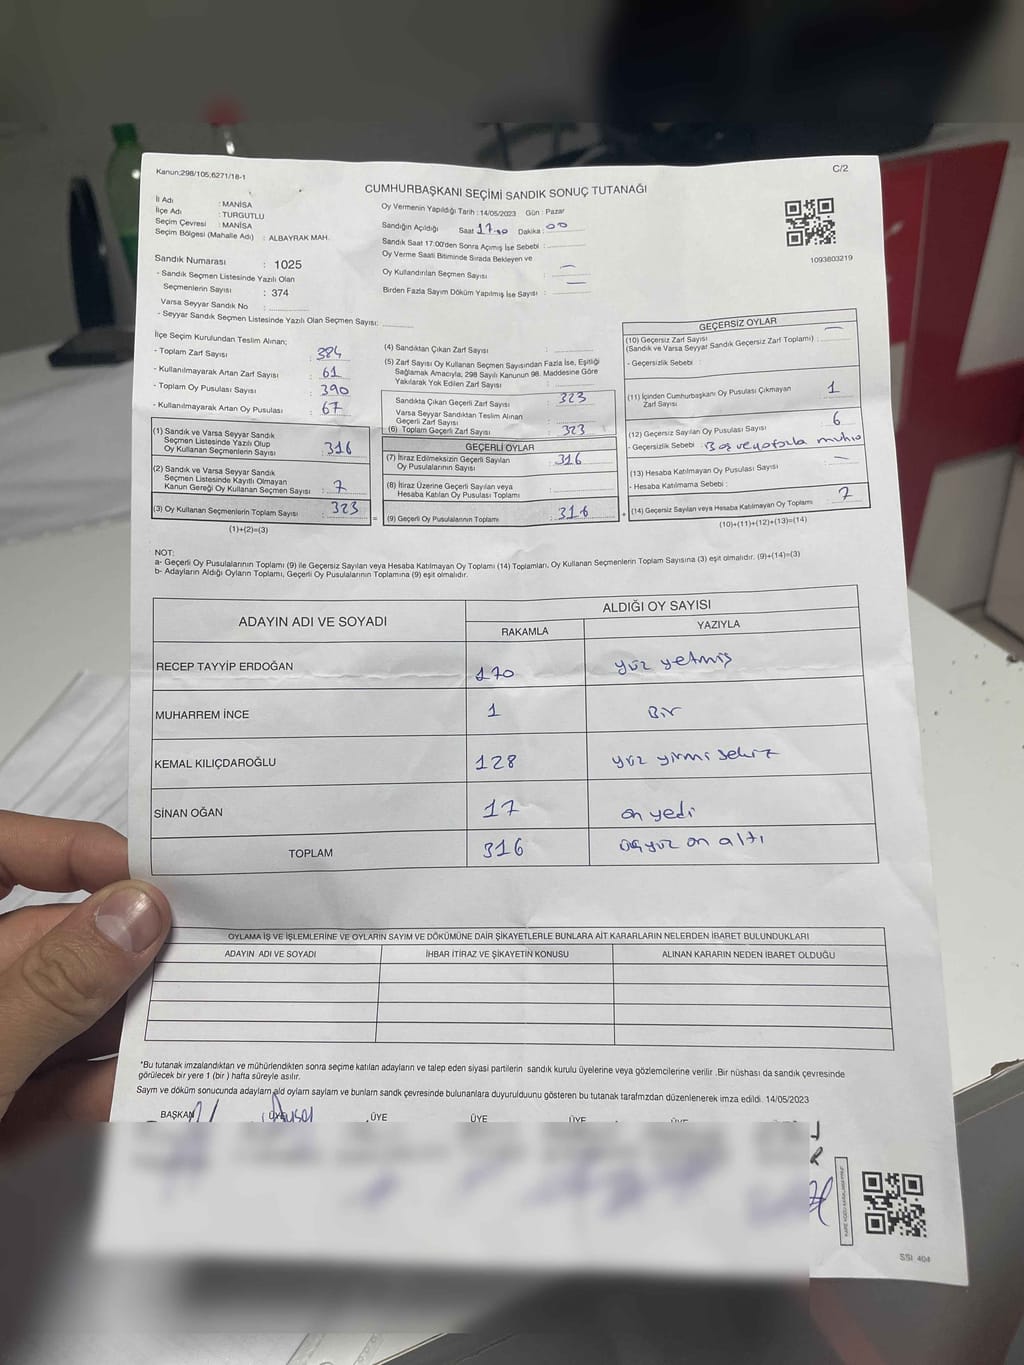 Kanun:298/105,6271/18-1
C/2
CUMHURBAŞKANI SEÇİMİ SANDIK SONUÇ TUTANAĞI
İl Adı : MANİSA
İlçe Adı : TURGUTLU
Seçim Çevresi : MANİSA
Seçim Bölgesi (Mahalle Adı) : ALBAYRAK MAH.
Sandık Numarası : 1025
- Sandık Seçmen Listesinde Yazılı Olan
Seçmenlerin Sayısı : 374
Varsa Seyyar Sandık No :
- Seyyar Sandık Seçmen Listesinde Yazılı Olan Seçmen Sayısı:
Oy Vermenin Yapıldığı Tarih :14/05/2023 Gün : Pazar
Sandığın Açıldığı Saat Dakika: 00
Sandık Saat 17:00'den Sonra Açımış İse Sebebi :
Oy Verme Saati Bitiminde Sırada Bekleyen ve
Oy Kullandırılan Seçmen Sayısı : —
Birden Fazla Sayım Döküm Yapılmış İse Sayısı : —
1093803219
İlçe Seçim Kurulundan Teslim Alınan;
- Toplam Zarf Sayısı : 384
- Kullanılmayarak Artan Zarf Sayısı : 61
- Toplam Oy Pusulası Sayısı : 390
- Kullanılmayarak Artan Oy Pusulası : 67
(1) Sandık ve Varsa Seyyar Sandık
Seçmen Listesinde Yazılı Olup
Oy Kullanan Seçmenlerin Sayısı : 316
(2) Sandık ve Varsa Seyyar Sandık
Seçmen Listesinde Kayıtlı Olmayan
Kanun Gereği Oy Kullanan Seçmen Sayısı : 7
(3) Oy Kullanan Seçmenlerin Toplam Sayısı : 323
(1)+(2)=(3)
(4) Sandıktan Çıkan Zarf Sayısı :
(5) Zarf Sayısı Oy Kullanan Seçmen Sayısından Fazla İse, Eşitliği
Sağlamak Amacıyla, 298 Sayılı Kanunun 98. Maddesine Göre
Yakılarak Yok Edilen Zarf Sayısı :
Sandıkta Çıkan Geçerli Zarf Sayısı : 323
Varsa Seyyar Sandıktan Teslim Alınan
Geçerli Zarf Sayısı :
(6) Toplam Geçerli Zarf Sayısı : 323
GEÇERLİ OYLAR
(7) İtiraz Edilmeksizin Geçerli Sayılan
Oy Pusulalarının Sayısı : 316
(8) İtiraz Üzerine Geçerli Sayılan veya
Hesaba Katılan Oy Pusulası Toplamı :
=
(9) Geçerli Oy Pusulalarının Toplamı : 316
+
GEÇERSİZ OYLAR
(10) Geçersiz Zarf Sayısı —
(Sandık ve Varsa Seyyar Sandık Geçersiz Zarf Toplamı) :
- Geçersizlik Sebebi :
(11) İçinden Cumhurbaşkanı Oy Pusulası Çıkmayan
Zarf Sayısı : 1
(12) Geçersiz Sayılan Oy Pusulası Sayısı : 6
- Geçersizlik Sebebi : Boş ve
(13) Hesaba Katılmayan Oy Pusulası Sayısı : —
- Hesaba Katılmama Sebebi :
(14) Geçersiz Sayılan veya Hesaba Katılmayan Oy Toplamı : 7
(10)+(11)+(12)+(13)=(14)
NOT:
a- Geçerli Oy Pusulalarının Toplamı (9) ile Geçersiz Sayılan veya Hesaba Katılmayan Oy Toplamı (14) Toplamları, Oy Kullanan Seçmenlerin Toplam Sayısına (3) eşit olmalıdır. (9)+(14)=(3)
b- Adayların Aldığı Oyların Toplamı, Geçerli Oy Pusulalarının Toplamına (9) eşit olmalıdır.
ADAYIN ADI VE SOYADI
ALDIĞI OY SAYISI
RAKAMLA YAZIYLA
RECEP TAYYİP ERDOĞAN 170 yüz yetmiş
MUHARREM İNCE 1 Bir
KEMAL KILIÇDAROĞLU 128 yüz yirmi sekiz
SİNAN OĞAN 17 on yedi
TOPLAM 316 üçyüz on altı
OYLAMA İŞ VE İŞLEMLERİNE VE OYLARIN SAYIM VE DÖKÜMÜNE DAİR ŞİKAYETLERLE BUNLARA AİT KARARLARIN NELERDEN İBARET BULUNDUKLARI
ADAYIN ADI VE SOYADI İHBAR İTİRAZ VE ŞİKAYETİN KONUSU ALINAN KARARIN NEDEN İBARET OLDUĞU
*Bu tutanak imzalandıktan ve mühürlendikten sonra seçime katılan adayların ve talep eden siyasi partilerin sandık kurulu üyelerine veya gözlemcilerine verilir .Bir nüshası da sandık çevresinde
görülecek bir yere 1 (bir ) hafta süreyle asılır.
Sayım ve döküm sonucunda adayların aldı oyların sayılarn ve bunların sandk çevresinde bulunanlara duyurulduunu gösteren bu tutanak tarafmzdan düzenlenerek imza edildi. 14/05/2023
BAŞKAN ÜYE ÜYE ÜYE ÜYE ÜYE
SSI 404